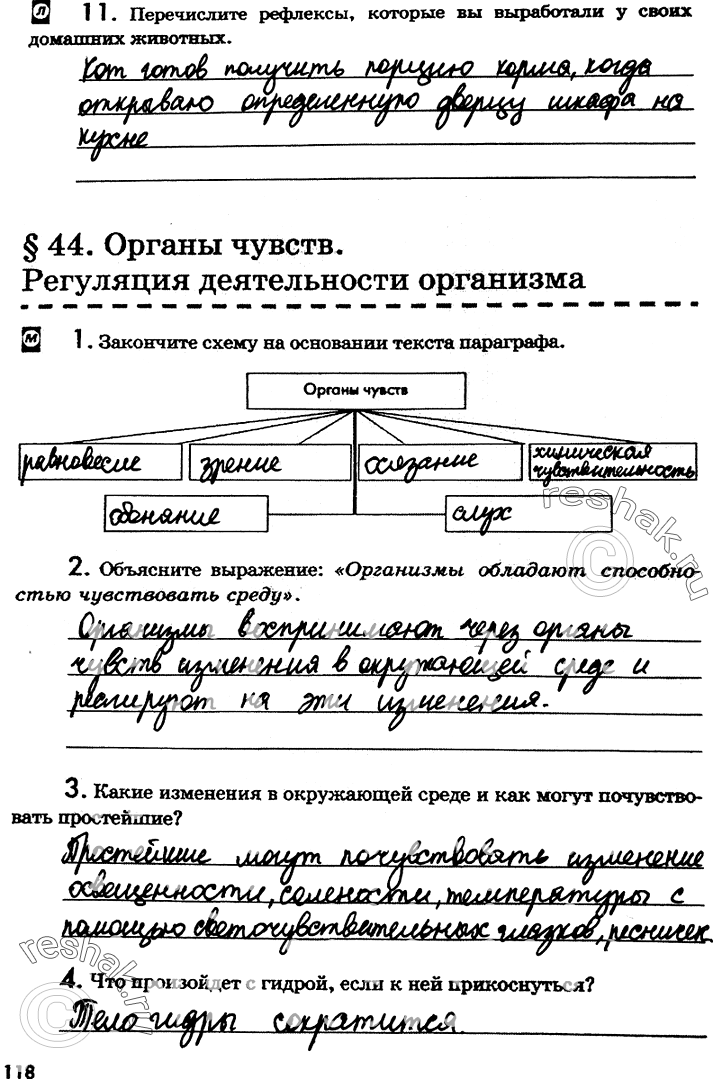 Л 11. Перечислите рефлексы, которые вы выработали у своих
домашних животных.
Кот готов получить порцию корма, когда
открываю определенную дверцу шкафа на
кухне
§ 44. Органы чувств.
Регуляция деятельности организма
М 1. Закончите схему на основании текста параграфа.
Органы чувств
равновесие зрение осязание химическая
чувствительность
обоняние слух
2. Объясните выражение: «Организмы обладают способно-
стью чувствовать среду».
Организмы воспринимают через органы
чувств изменения в окружающей среде и
реагируют на эти изменения.
3. Какие изменения в окружающей среде и как могут почувство-
вать простейшие?
Простейшие могут почувствовать изменение
освещенности, солености, температуры с
помощью светочувствительных глазков, ресничек
4. Что произойдет с гидрой, если к ней прикоснуться?
Тело гидры сократится.
118
reshak.ru
reshak.ru